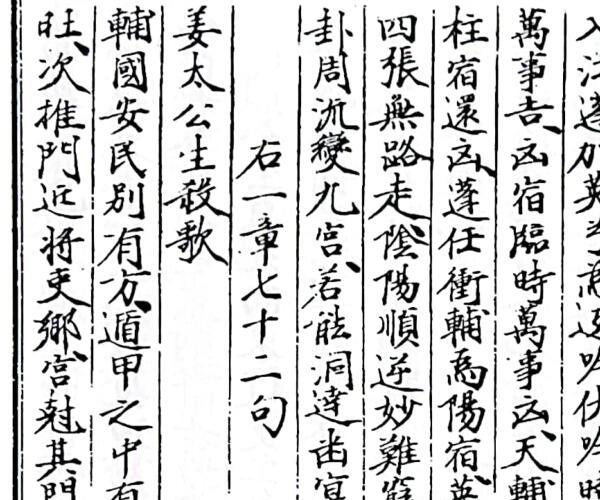 萬事吉凶宿臨時萬事凶天輔
柱宿還凶蓬任衝輔為陽宿英
四張無路走陰陽順逆妙難窮
卦周流變九宮若能洞達
右一章七十二句
姜太公生殺歌
輔國安民別有方遁甲之中有
旺次推門近將吏鄉宮尅其門